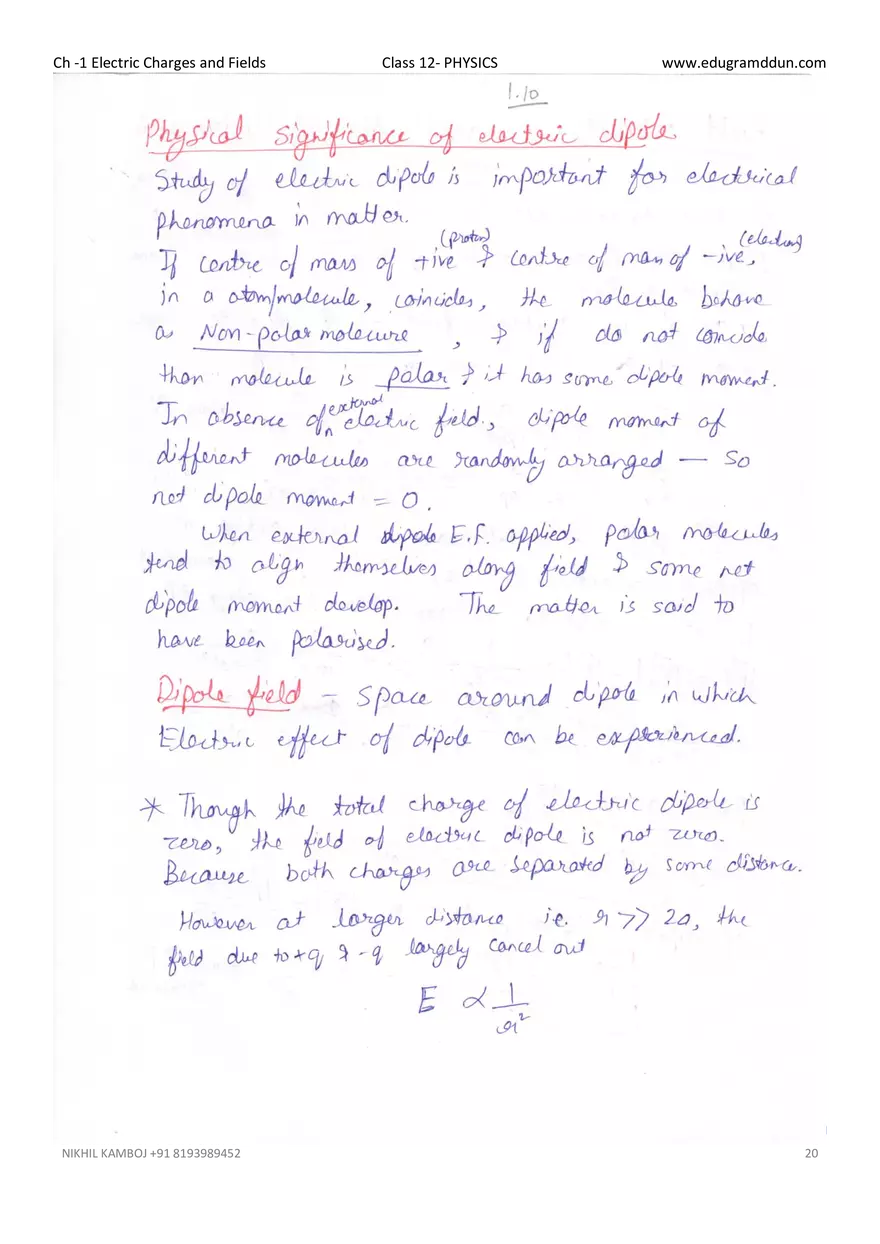 Ch -1 Electric Charges and Fields Class 12- PHYSICS www.edugramddun.com
1.10
Physical significance of electric dipole
Study of electric dipole is important for electrical
phenomena in matter.
(proton) (electron)
If centre of mass of +ive & centre of mass of -ive,
in a atom/molecule, coincides, the molecule behave
a Non-polar molecure, & if do not coincide
than molecule is polar & it has some dipole moment.
In absence of external electric field, dipole moment of
different molecules are randomly arranged — So
net dipole moment = 0.
When external dipole E.F. applied, polar molecules
tend to align themselves along field & some net
dipole moment develop. The matter is said to
have been polarised.
Dipole field - Space around dipole in which
Electric effect of dipole can be experienced.
* Though the total charge of electric dipole is
zero, the field of electric dipole is not zero.
Because both charges are separated by some distance.
However at larger distance i.e. r >> 2a, the
field due to +q & -q largely cancel out
E ∝ 1/r²
NIKHIL KAMBOJ +91 8193989452 20